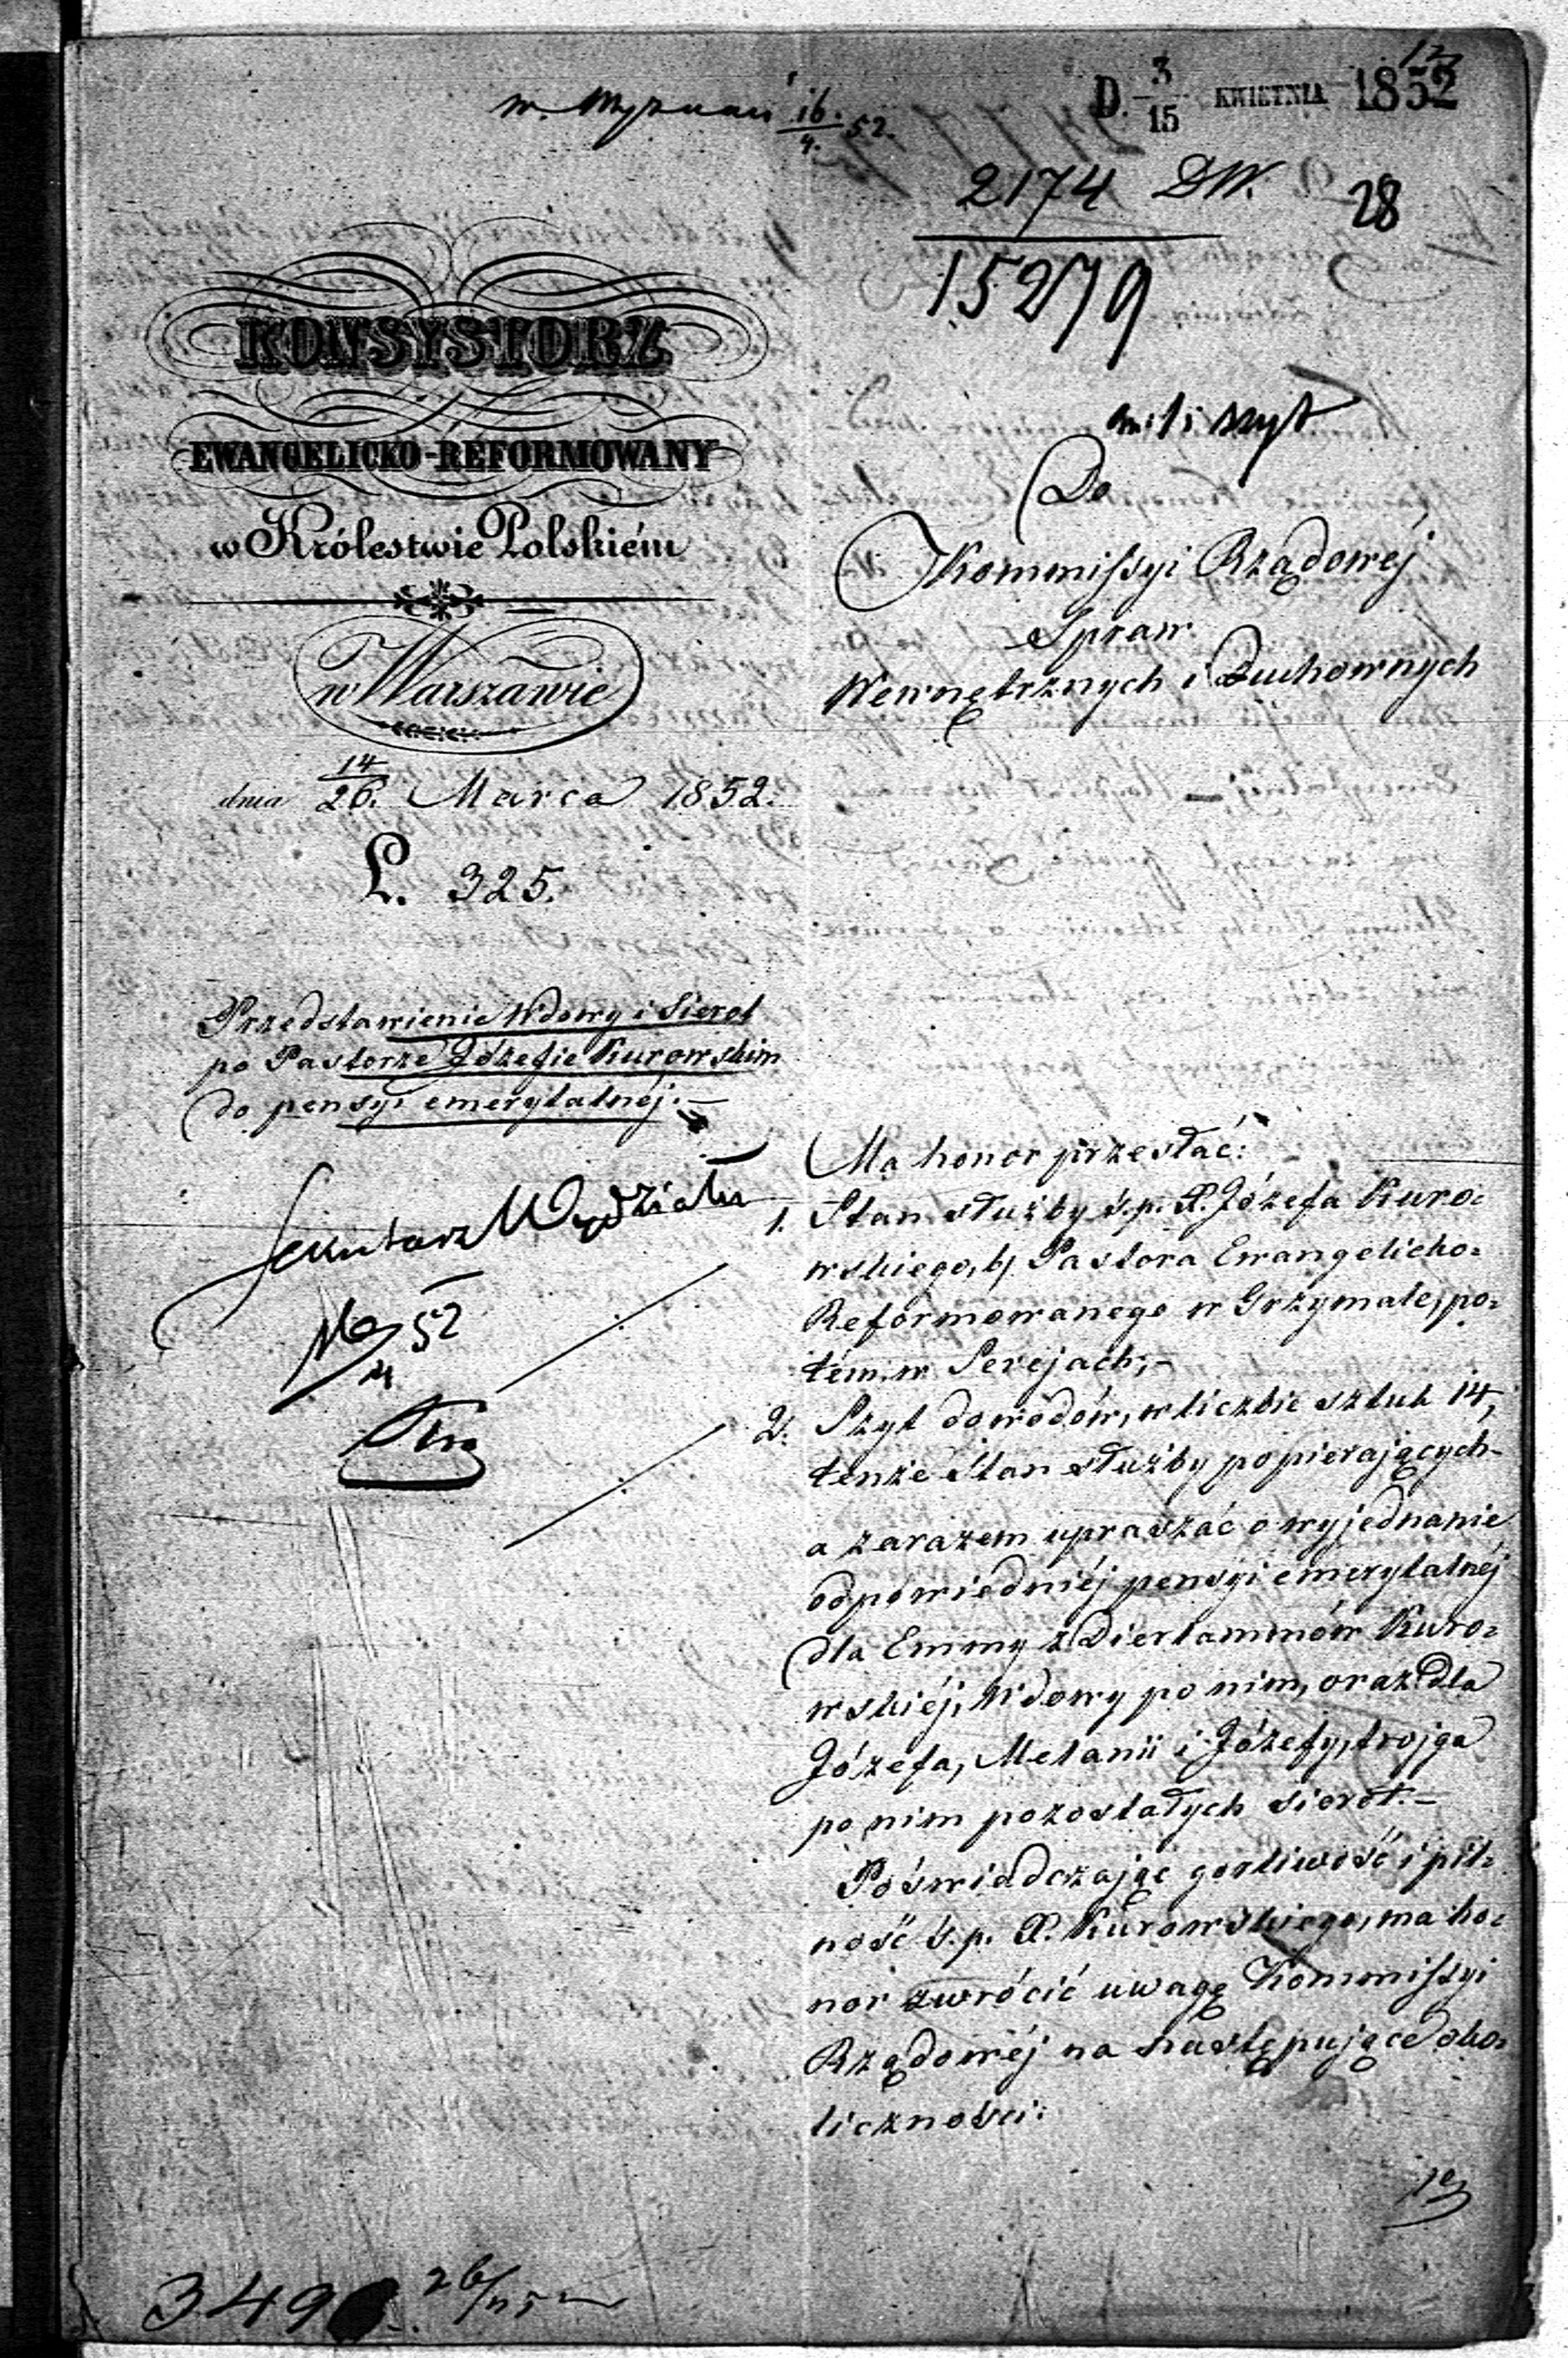 12
D. 3/15 KWIETNIA 1852
w. Wyznań 16./4. 52.
2174 DW. 28
15279
KONSYSTORZ
EWANGELICKO-REFORMOWANY
w Królestwie Polskiém
w Warszawie
dnia 14/26. Marca 1852.
L. 325.
Przedstawienie Wdowy i Sierot
po Pastorze Józefie Kurowskim
do pensyi emerytalnéj.—
Sekretarz Wydziału
16/4 52
szyt
Do
Kommissyi Rządowéj
Spraw
Wewnętrznych i Duchownych
Ma honor przesłać:
1. Stan służby ś.p. X. Józefa Kuro=
wskiego, b. Pastora Ewangelicko=
Reformowanego w Grzymale, po=
tém w Serejach;—
2. Szyt dowodów, w liczbie sztuk 14,
tenże Stan służby popierających—
a zarazem upraszać o wyjednanie
odpowiedniéj pensyi emerytalnéj
dla Emmy z Dierlammów Kuro=
wskiéj, Wdowy po nim, oraz dla
Józefa, Melanii i Józefy, trojga
po nim pozostałych sierot.—
Poświadczając gorliwość i pil=
ność ś.p. X. Kurowskiego, ma ho=
nor zwrócić uwagę Kommissyi
Rządowéj na następujące oko=
liczności:
349
26/4 52